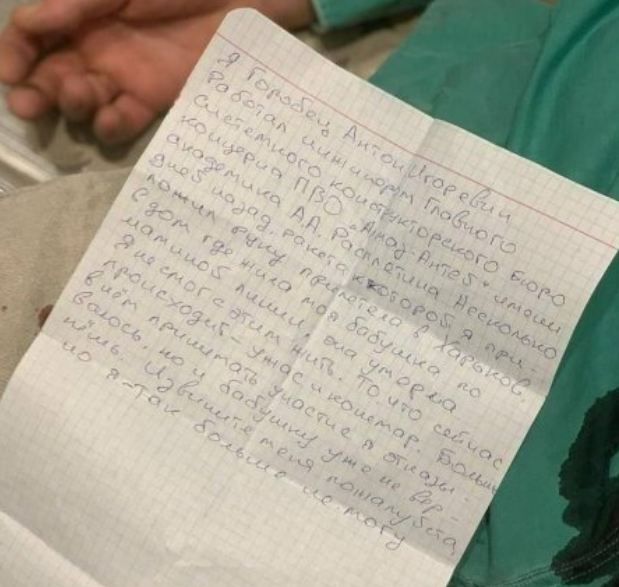 Я Горобец Антон Игоревич
работал инженером Главного
системного конструкторского Бюро
концерна ПВО "Алмаз-Антей" имени
академика А.А. Расплетина. Несколько
дней назад, ракета к которой я при-
ложил руку прилетела в Харьков,
в дом где жила моя бабушка по
маминой линии, она умерла
Я не смог с этим жить. То что сейчас
происходит - ужас и кошмар. Больше
в нём принимать участие я отказы-
ваюсь, но и бабушку уже не вер-
нёшь. Извините меня пожалуйста,
но я так больше не могу